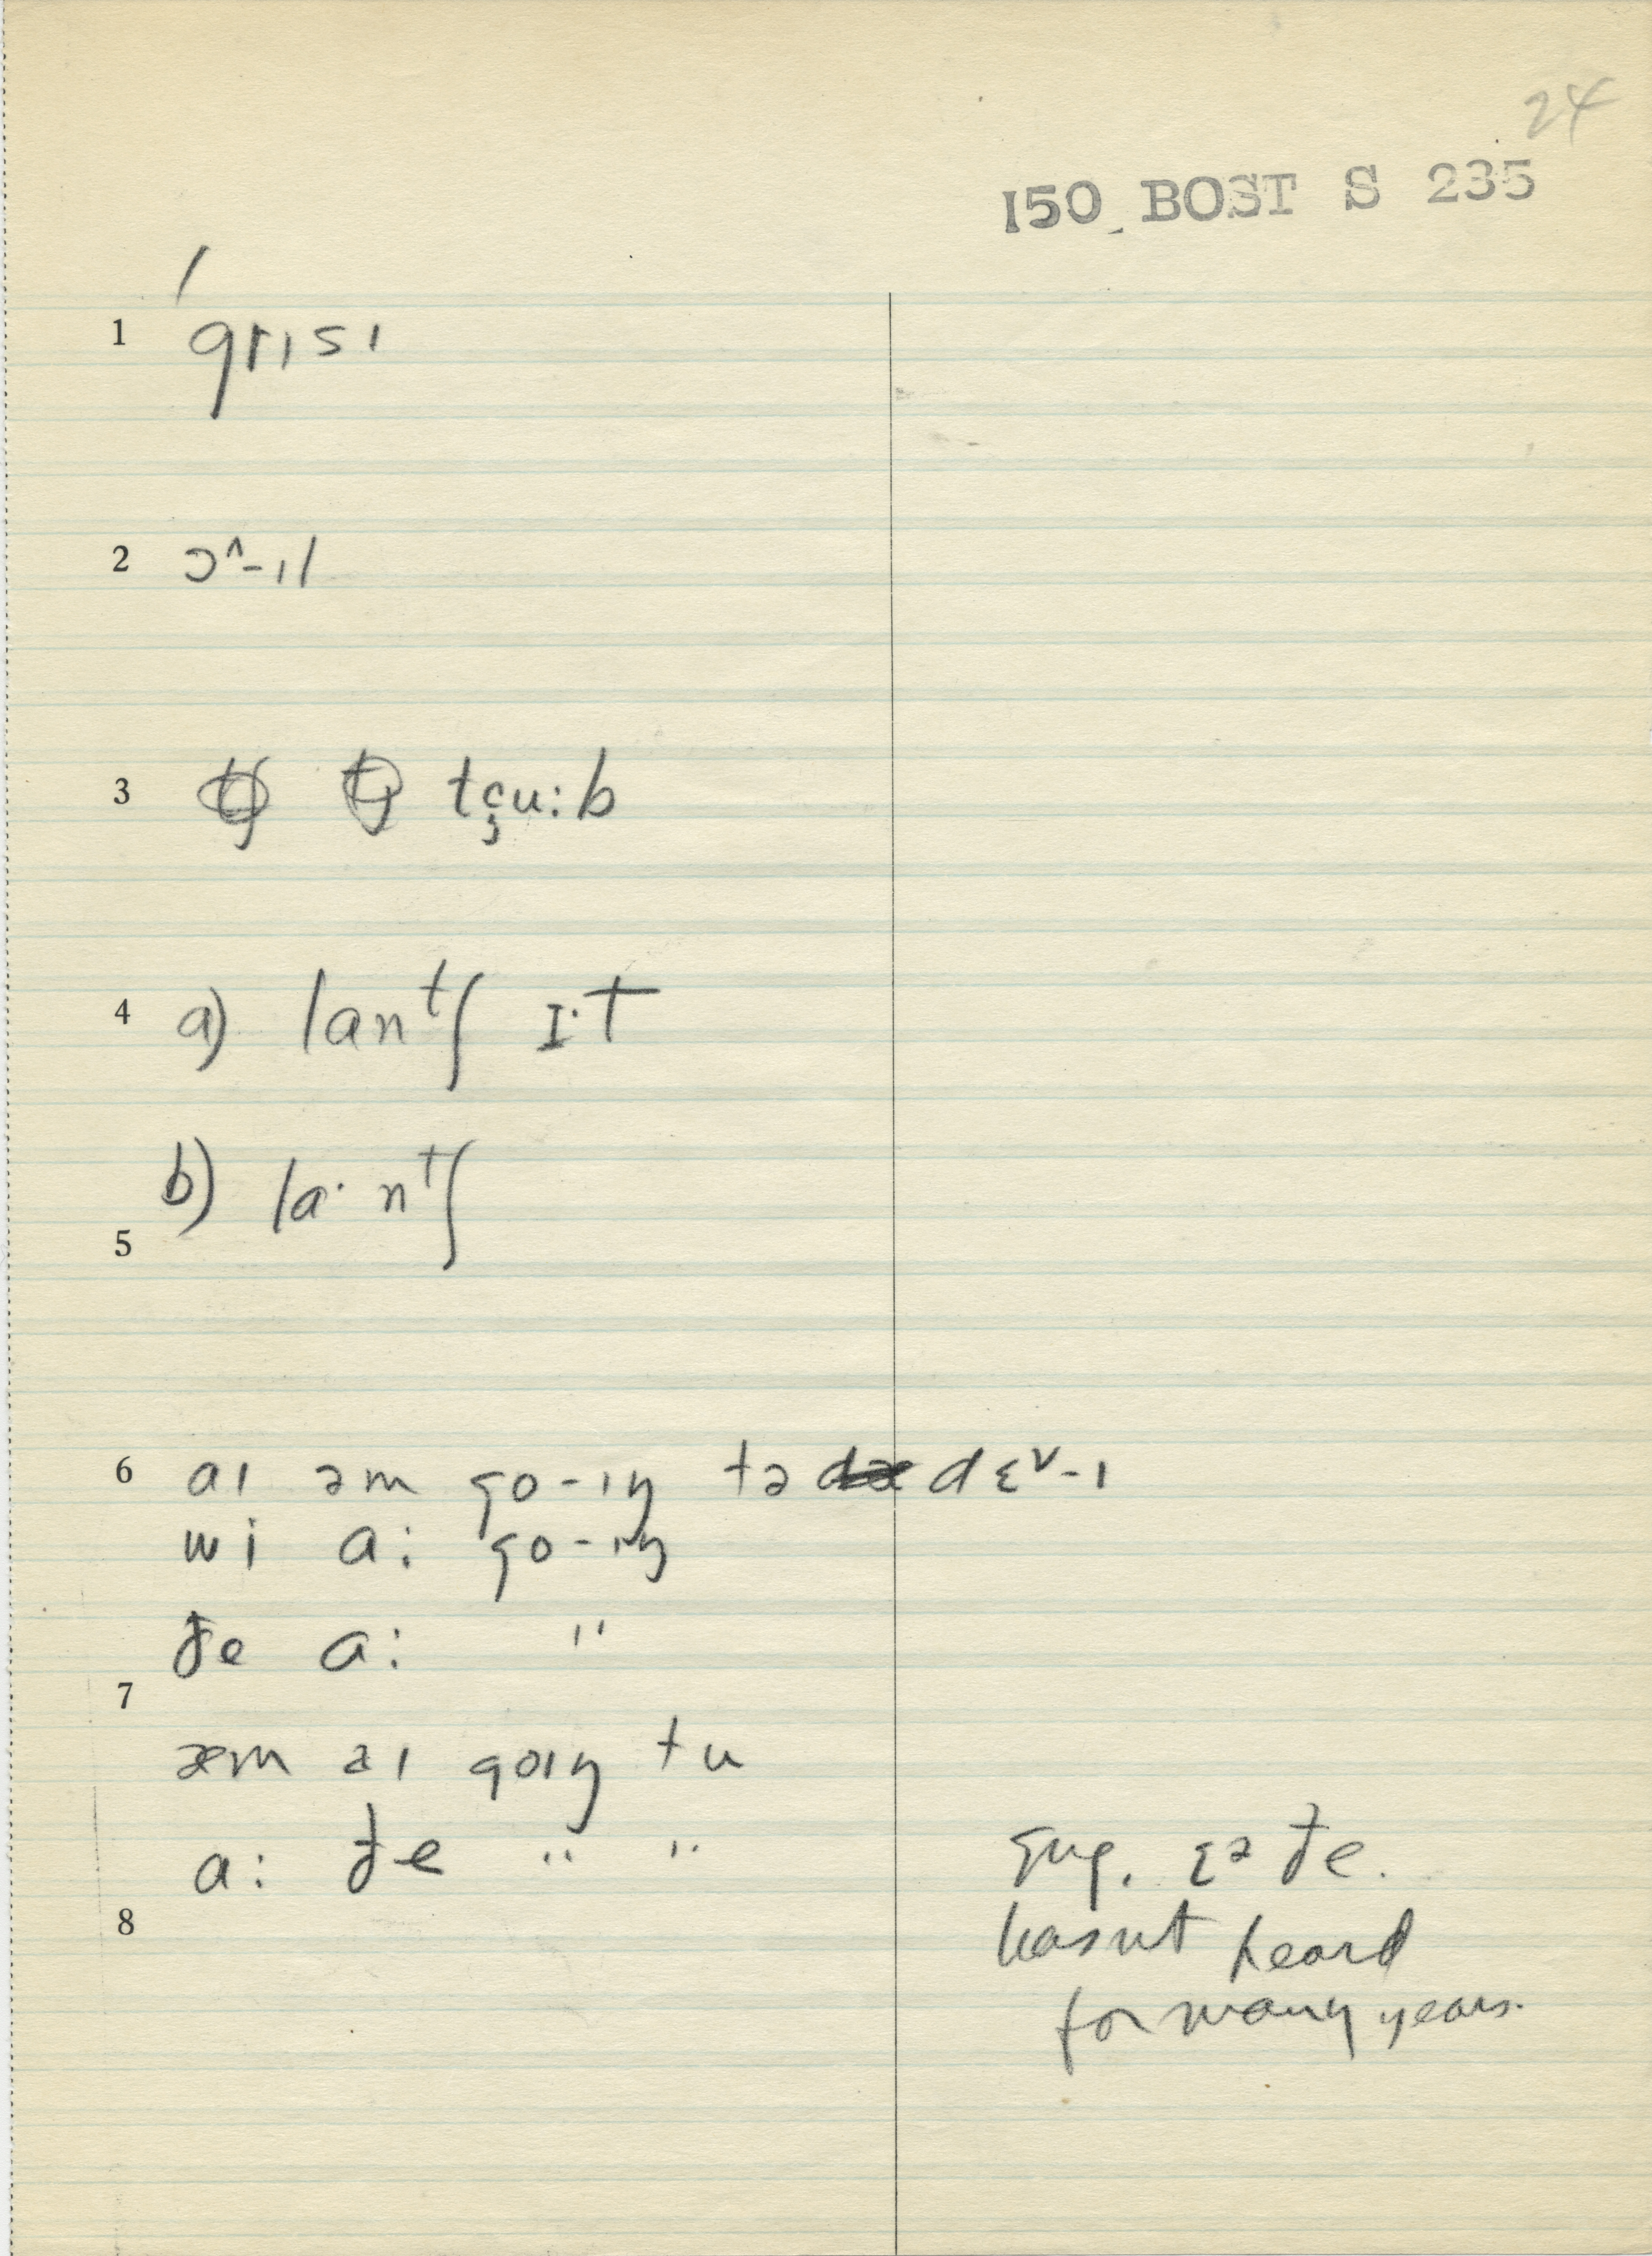 24
150 BOST S 235
1 grɪsɪ
2 ɔ^-ɪl
3 tçu:b
4 a) lan tʃ I·T
b) la· n tʃ
5
6 aɪ əm go-ɪŋ tə dɛ˅-ɪ
wi a: go-ɪŋ
đe a: "
7
æm aɪ goɪŋ tu
a: đe " "
Eng. ɛə đe.
8
hasnt heard
for many years.